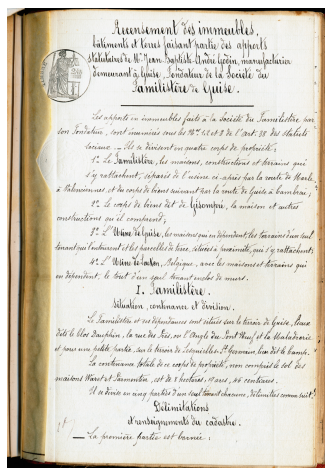 Recensement des immeubles,
bâtiments et terres faisant partie des apports
statutaires de Mr Jean-Baptiste-André Godin, manufacturier
demeurant à Guise, Fondateur de la Société du
Familistère de Guise.
Les apports en immeubles faits à la Société du Familistère par
son Fondateur, sont énumérés sous les Nos 1, 2 et 3 de l'art. 38 des statuts
sociaux. Ils se divisent en quatre corps de propriété:
1° Le Familistère, les maisons, constructions et terrains qui
s'y rattachent, séparés de l'usine ci-après par la route de Marle
à Valenciennes, et du corps de biens suivant par la route de Guise à Cambrai,
2° Le corps de biens dit de Gisompré, la maison et autres
constructions qu'il comprend;
3° L'Usine de Guise, les maisons qui en dépendent, les terrains d'un seul
tenant qui l'entourent et les parcelles de terre, situées à proximité, qui s'y rattachent;
4° L'Usine de Laeken, Belgique, avec les maisons et terrains qui
en dépendent: le tout d'un seul tenant enclos de murs.
I. Familistère.
Situation, contenance et division.
Le Familistère et ses dépendances sont situés sur le terroir de Guise, lieux
dits le Clos Dauphin, la rue des Prés, ou l'Angle du Pont Neuf et la Maladrerie
et pour une petite partie, sur le terroir de Lesquielles-St-Germain, lieu dit le Camp.
La contenance totale de ce corps de propriété, non compris le sol des
maisons Waret et Parmentier, est de 8 hectares, 19 ares, 46 centiares.
Il se divise en cinq parties d'un seul tenant chacune, délimitées comme suit:
Délimitations
et renseignements du cadastre.
La première partie est bornée: